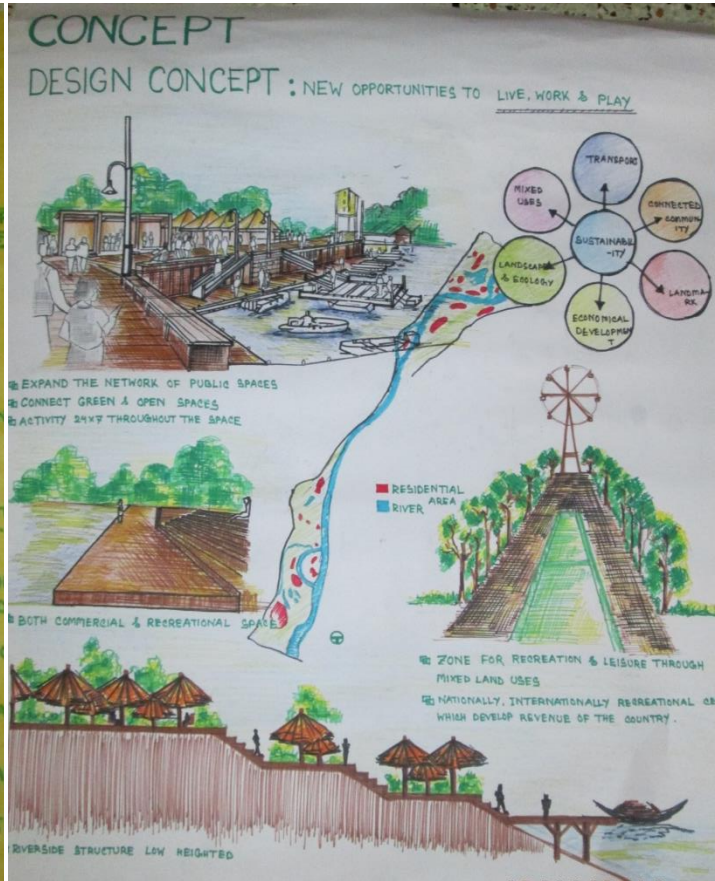 CONCEPT
DESIGN CONCEPT : NEW OPPORTUNITIES TO LIVE, WORK & PLAY
TRANSPORT
MIXED
USES
CONNECTED
COMMUN
ITY
SUSTAINABL
-ITY
LANDSCAPE
& ECOLOGY
LANDMA
RK
ECONOMICAL
DEVELOPMEN
T
EXPAND THE NETWORK OF PUBLIC SPACES
CONNECT GREEN & OPEN SPACES
ACTIVITY 24X7 THROUGHOUT THE SPACE
RESIDENTIAL
AREA
RIVER
BOTH COMMERCIAL & RECREATIONAL SPACE
ZONE FOR RECREATION & LEISURE THROUGH
MIXED LAND USES
NATIONALLY, INTERNATIONALLY RECREATIONAL
WHICH DEVELOP REVENUE OF THE COUNTRY.
RIVERSIDE STRUCTURE LOW HEIGHTED